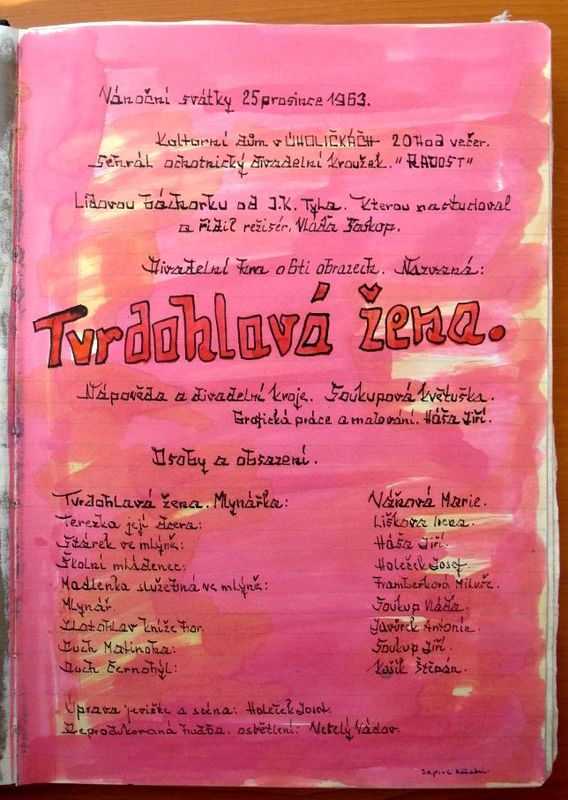 Vánoční svátky 25 prosince 1963.
Kulturní dům v ÚHOLIČKÁCH 20 Hod večer.
Sehrál ochotnický divadelní kroužek. "RADOST"
Lidovou báchorku od J.K. Tyla. Kterou nastudoval
a řídil režisér. Vláďa Soukup.
Divadelní hra o 6ti obrazech. Nazvaná:
Tvrdohlavá žena.
Nápověda a divadelní kroje. Soukupová Květuška.
Grafická práce a malování. Háša Jiří.
Osoby a obsazení.
Tvrdohlavá žena. Mlynářka: Vášová Marie.
Terezka její dcera: Lišková Irena.
Stárek ve mlýně: Háša Jiří.
Školní mládenec: Holeček Josef.
Madlenka služebná ve mlýně: Miluše.
Mlynář. Soukup Vláďa.
Zlatohlav kníže hor. Javůrek Antonín.
Duch Matinoha: Soukup Jiří.
Duch Černohýl: Košík Štěpán.
Úprava jeviště a scéna: Holeček Josef.
Reprodukovaná hudba, osvětlení: Netelý